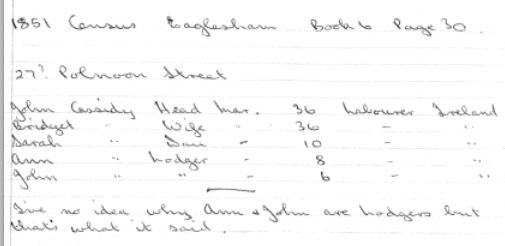 1851 Census Eaglesham Book 6 Page 30.
27? Polnoon Street
John Cassidy Head Mar. 36 Labourer Ireland
Bridget " Wife " 36 - "
Sarah " Dau - 10 - "
Ann " Lodger - 8 - "
John " " - 6 - "
I've no idea why Ann & John are Lodgers but
that's what it said.